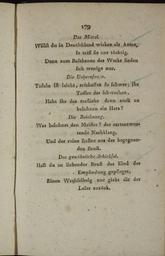 179
Das Mittel.
Willst du in Deutschland wirken als Autor,
so triff sie nur tüchtig,
Denn zum Beschauen des Werks finden
sich wenige nur.
Die Unberufenen.
Tadeln ist leicht, erschaffen so schwer; ihr
Tadler des Schwachen,
Habt ihr das Treffliche denn auch zu
belohnen ein Herz?
Die Belohnung.
Was belohnet den Meister? der zartantwor-
tende Nachklang,
Und der reine Reflex aus der begegnen-
den Brust.
Das gewöhnliche Schicksal.
Hast du an liebender Brust das Kind der
Empfindung gepfleget,
Einen Wechselbalg nur giebt dir der
Leser zurück.